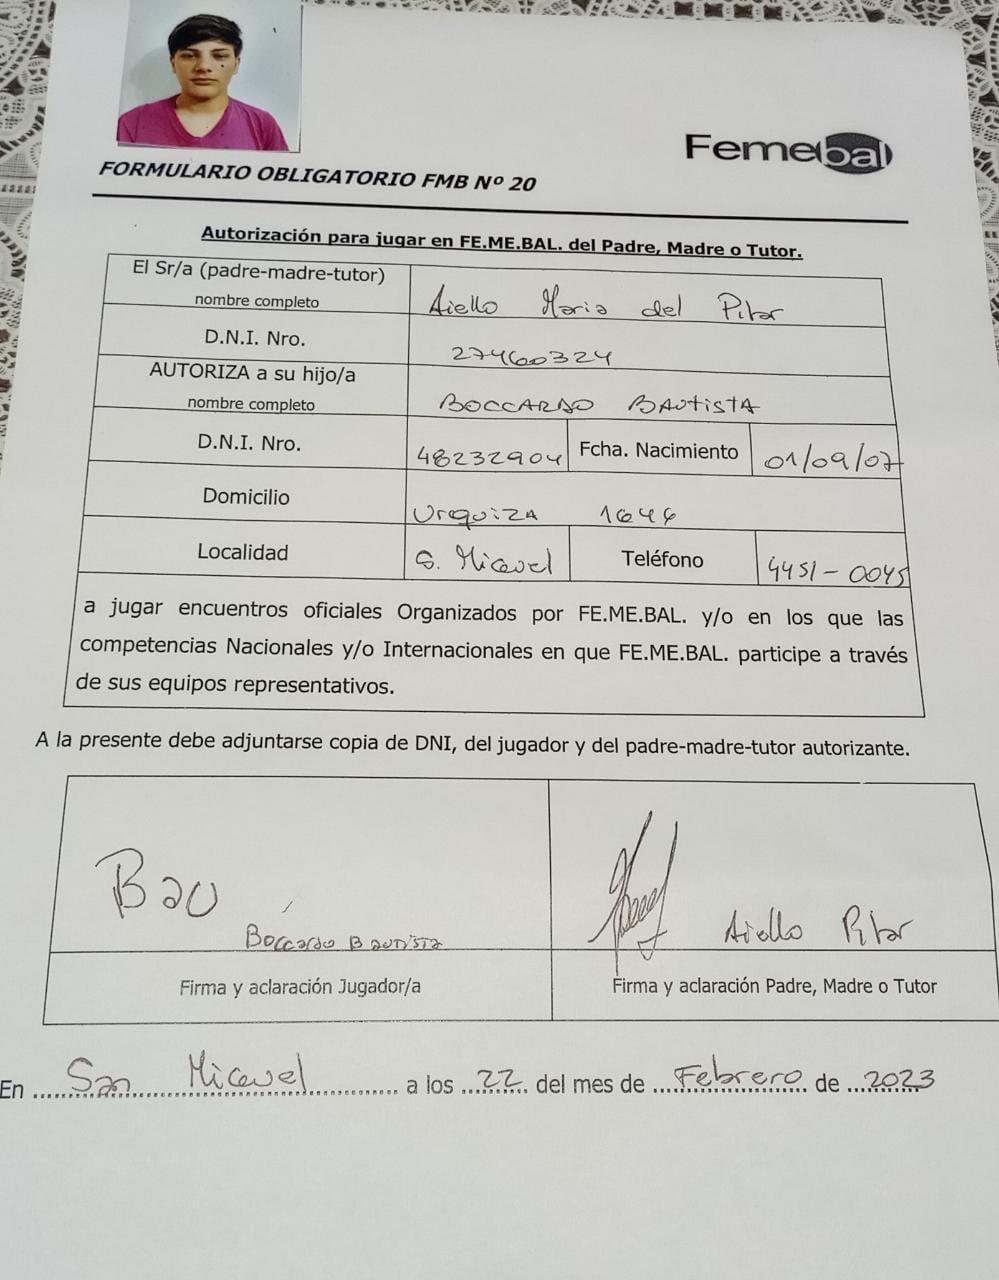 Femebal
FORMULARIO OBLIGATORIO FMB Nº 20
Autorización para jugar en FE.ME.BAL. del Padre, Madre o Tutor.
El Sr/a (padre-madre-tutor)
nombre completo
Aiello Maria del Pilar
D.N.I. Nro.
27460324
AUTORIZA a su hijo/a
nombre completo
BOCCARDO BAUTISTA
D.N.I. Nro.
48232904
Fcha. Nacimiento
01/09/07
Domicilio
Urquiza 1646
Localidad
S. Miguel
Teléfono
4451-0045
a jugar encuentros oficiales Organizados por FE.ME.BAL. y/o en los que las
competencias Nacionales y/o Internacionales en que FE.ME.BAL. participe a través
de sus equipos representativos.
A la presente debe adjuntarse copia de DNI, del jugador y del padre-madre-tutor autorizante.
Bau
Boccardo Bautista
Aiello Pilar
Firma y aclaración Jugador/a
Firma y aclaración Padre, Madre o Tutor
En San Miguel a los 22 del mes de Febrero de 2023